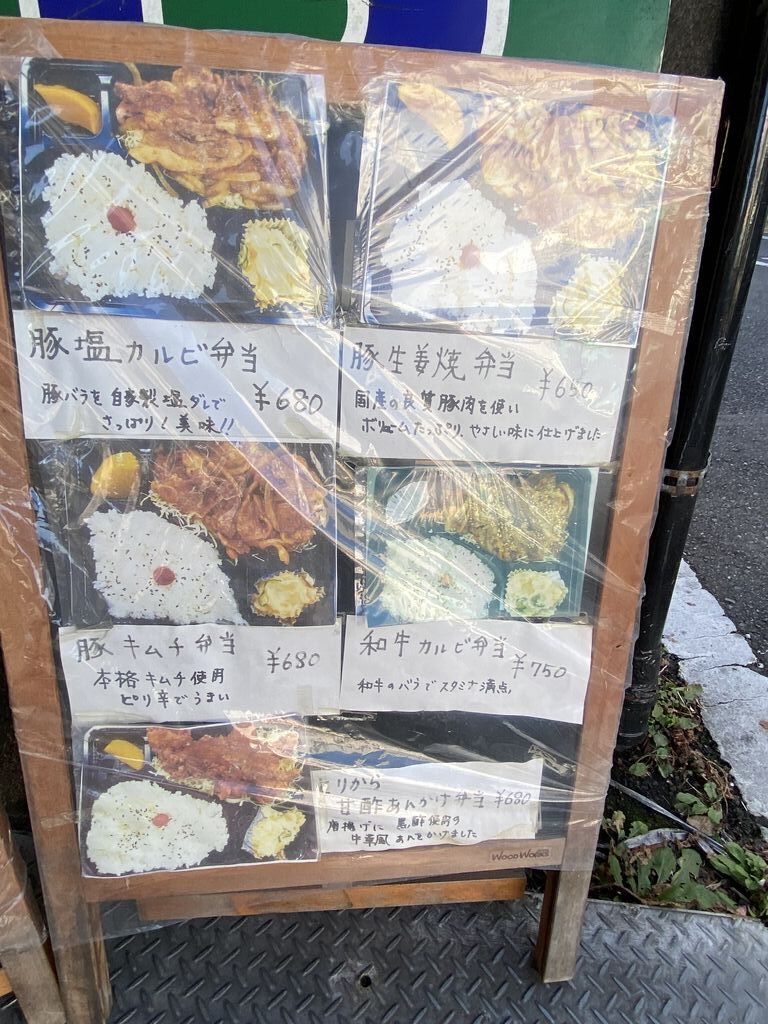 豚塩カルビ弁当
豚バラを自家製塩ダレで ¥680
さっぱり！美味!!
豚生姜焼弁当
¥650
国産の良質豚肉を使い
ボリュームたっぷり、やさしい味に仕上げました
豚キムチ弁当 ¥680
本格キムチ使用
ピリ辛でうまい
和牛カルビ弁当
¥750
和牛のバラでスタミナ満点、
りから
甘酢あんかけ弁当 ¥680
唐揚げに 黒酢使用の
中華風 あんをかけました
WOODWORKS